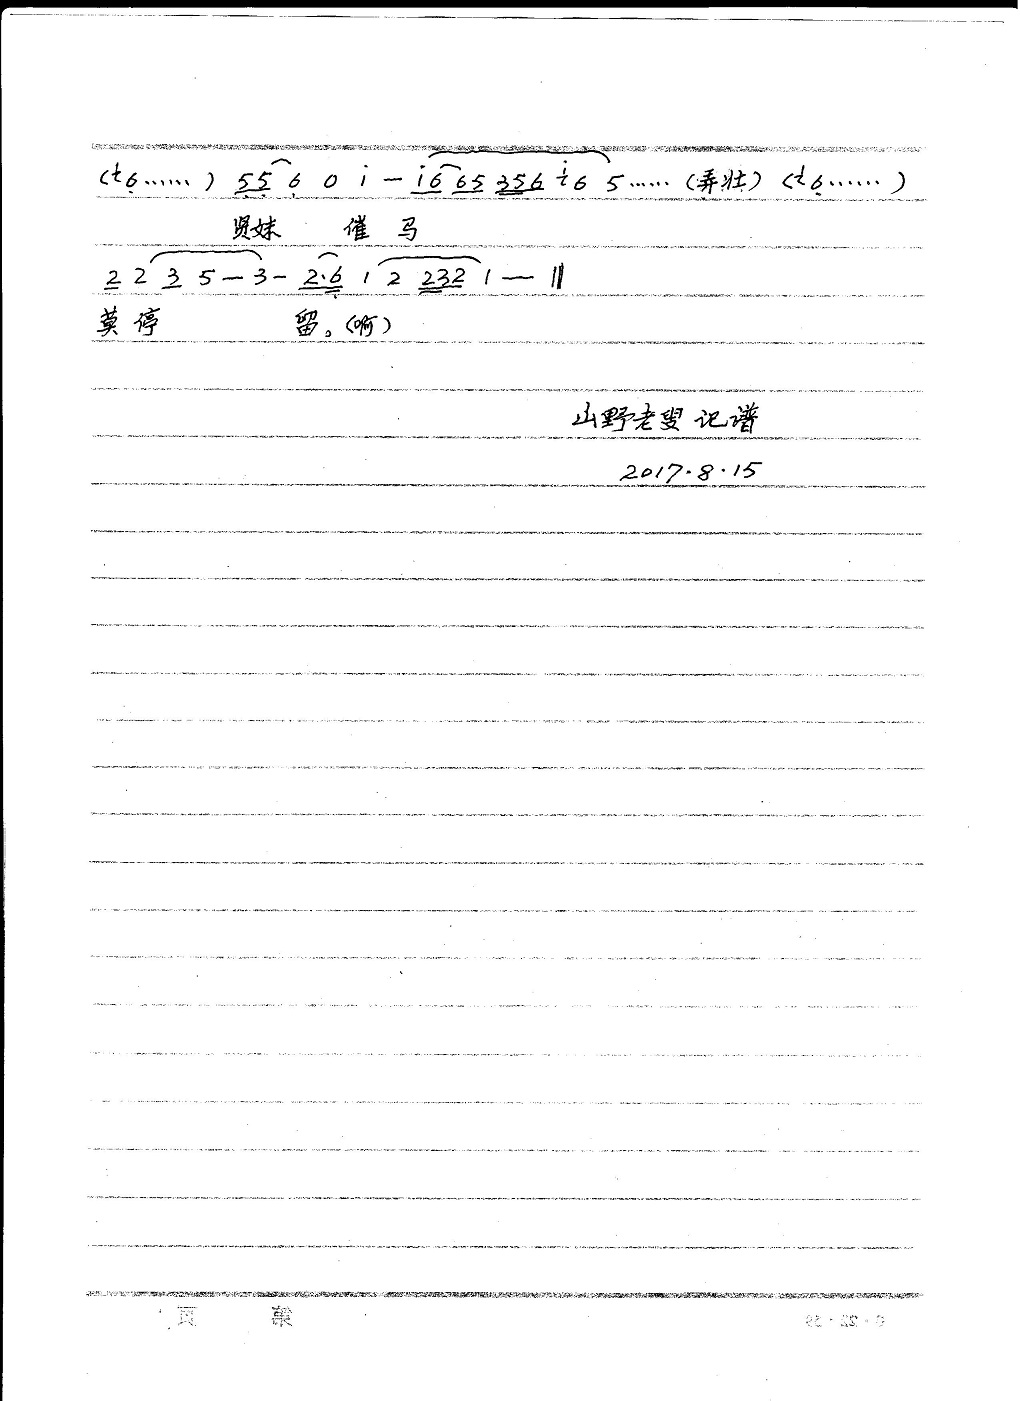 (七6……) 5 5 6 0 i — i 6 6 5 3 5 6 i 6 5 …… (弄壮) (七6……)
贤妹 催马
2 2 3 5 — 3 - 2·6 1 2 2 3 2 1 — ‖
莫停 留。(啊)
山野老叟 记谱
2017·8·15
第 页